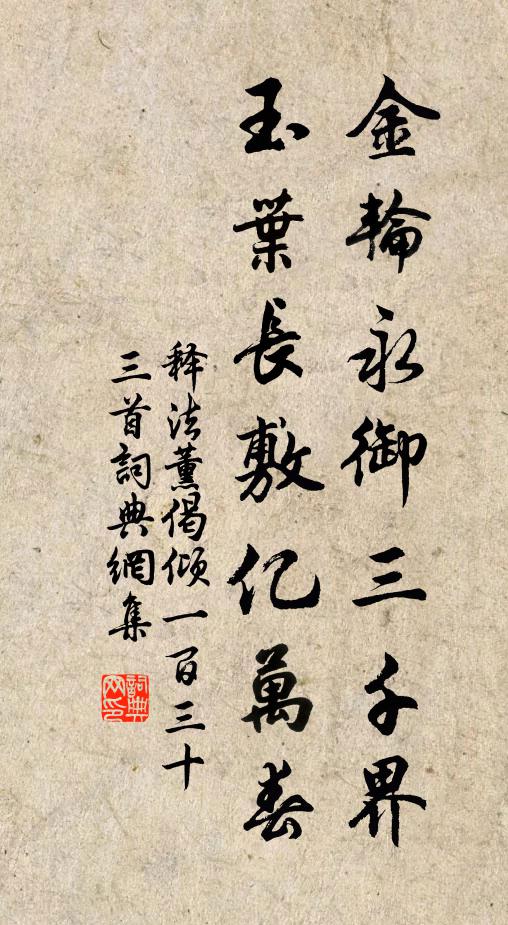 金輪永御三千界
玉葉長敷亿萬春
释法薰偈傾一百三十
三首詞典網集
詞典網印